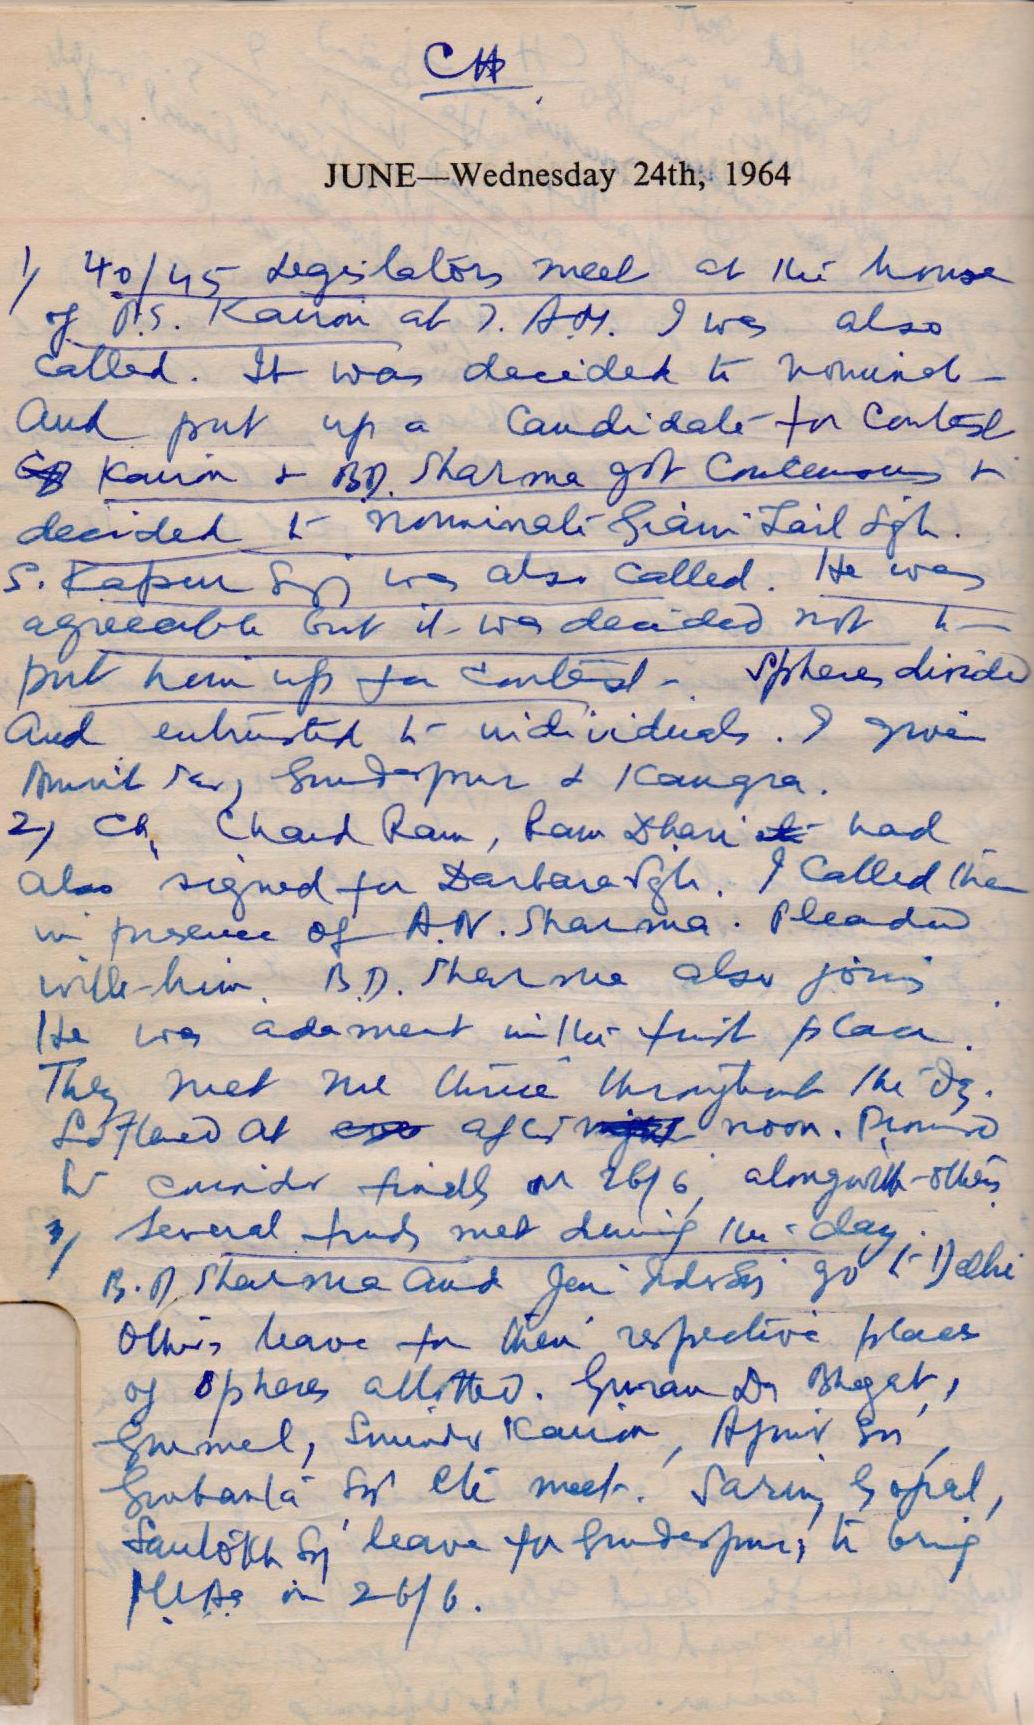 CH
JUNE—Wednesday 24th, 1964
1) 40/45 Legislators meet at the house
of P.S. Kairon at 7. A.M. I was also
called. It was decided to nominate
and put up a candidate for contest
Kairon & B.D. Sharma got consensus &
decided to nominate Giani Zail Sgh.
S. Kapur Sgh was also called. He was
agreeable but it was decided not to
put him up for contest. Spheres divided
and entrusted to individuals. I given
Amritsar, Gurdaspur & Kangra.
2) Ch. Chand Ram, Ram Dhari had
also signed for Darbara Sgh. I called them
in presence of A.N. Sharma. Pleaded
with him. B.D. Sharma also joins
He was adament in the first place.
They met me thrice throughout the day.
Softened at after noon. Promised
to consider finally on 26/6 alongwith others
3) Several frnds met during the day.
B.D. Sharma and Inder Sgh go to Delhi
Others leave for their respective places
of spheres allotted. Guran Ds Bhagat,
Gurmel, Surinder Kairon, Ajmir Sgh,
Gurbanta Sgh etc meet. Sarin, Gopal,
Santokh Sgh leave for Gurdaspur, to bring
MLAs on 26/6.